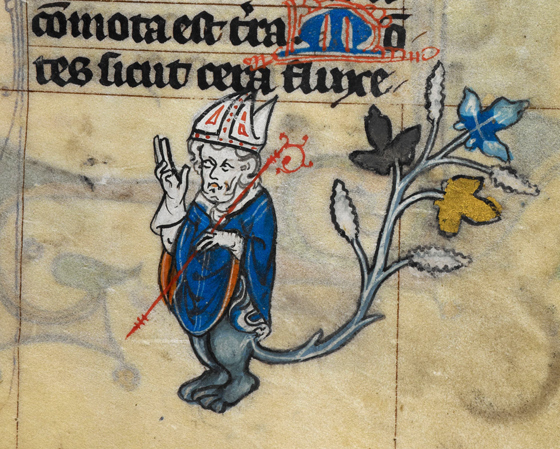 cōmota est t̄ra M ō
tes sicut cera fluxe